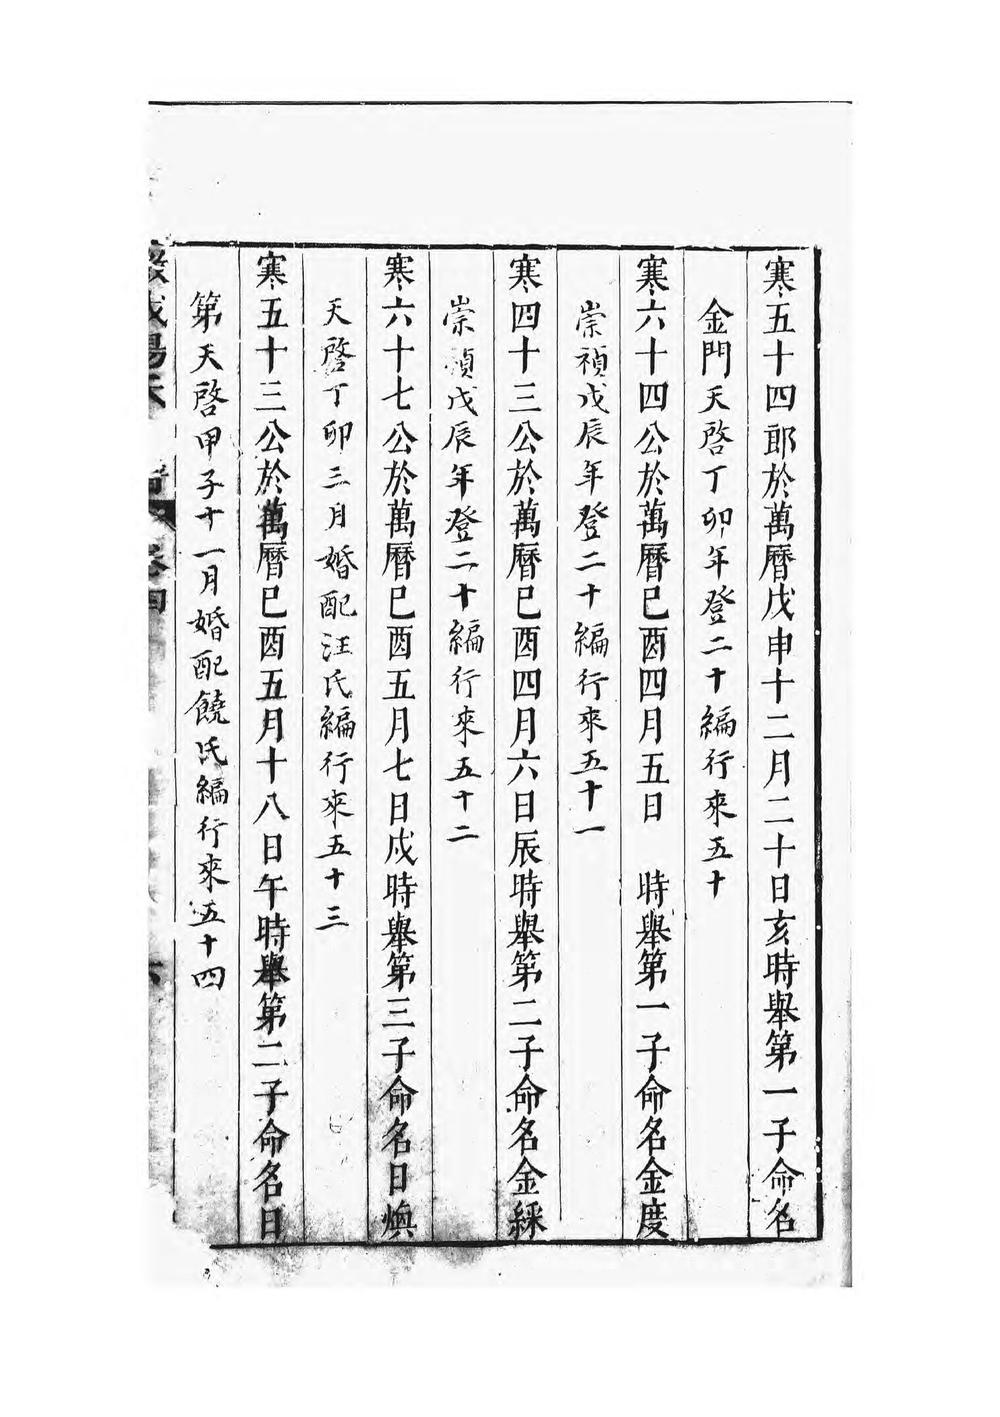 寒五十四郎於萬曆戊申十二月二十日亥時舉第一子命名
金門天啓丁卯年登二十編行來五十
寒六十四公於萬曆巳酉四月五日　時舉第一子命名金度
崇禎戊辰年登二十編行來五十一
寒四十三公於萬曆巳酉四月六日辰時舉第二子命名金綵
崇禎戊辰年登二十編行來五十二
寒六十七公於萬曆巳酉五月七日戌時舉第三子命名日煥
天啓丁卯三月婚配汪氏編行來五十三
寒五十三公於萬曆巳酉五月十八日午時舉第二子命名日
第天啓甲子十一月婚配饒氏編行來五十四
卷四